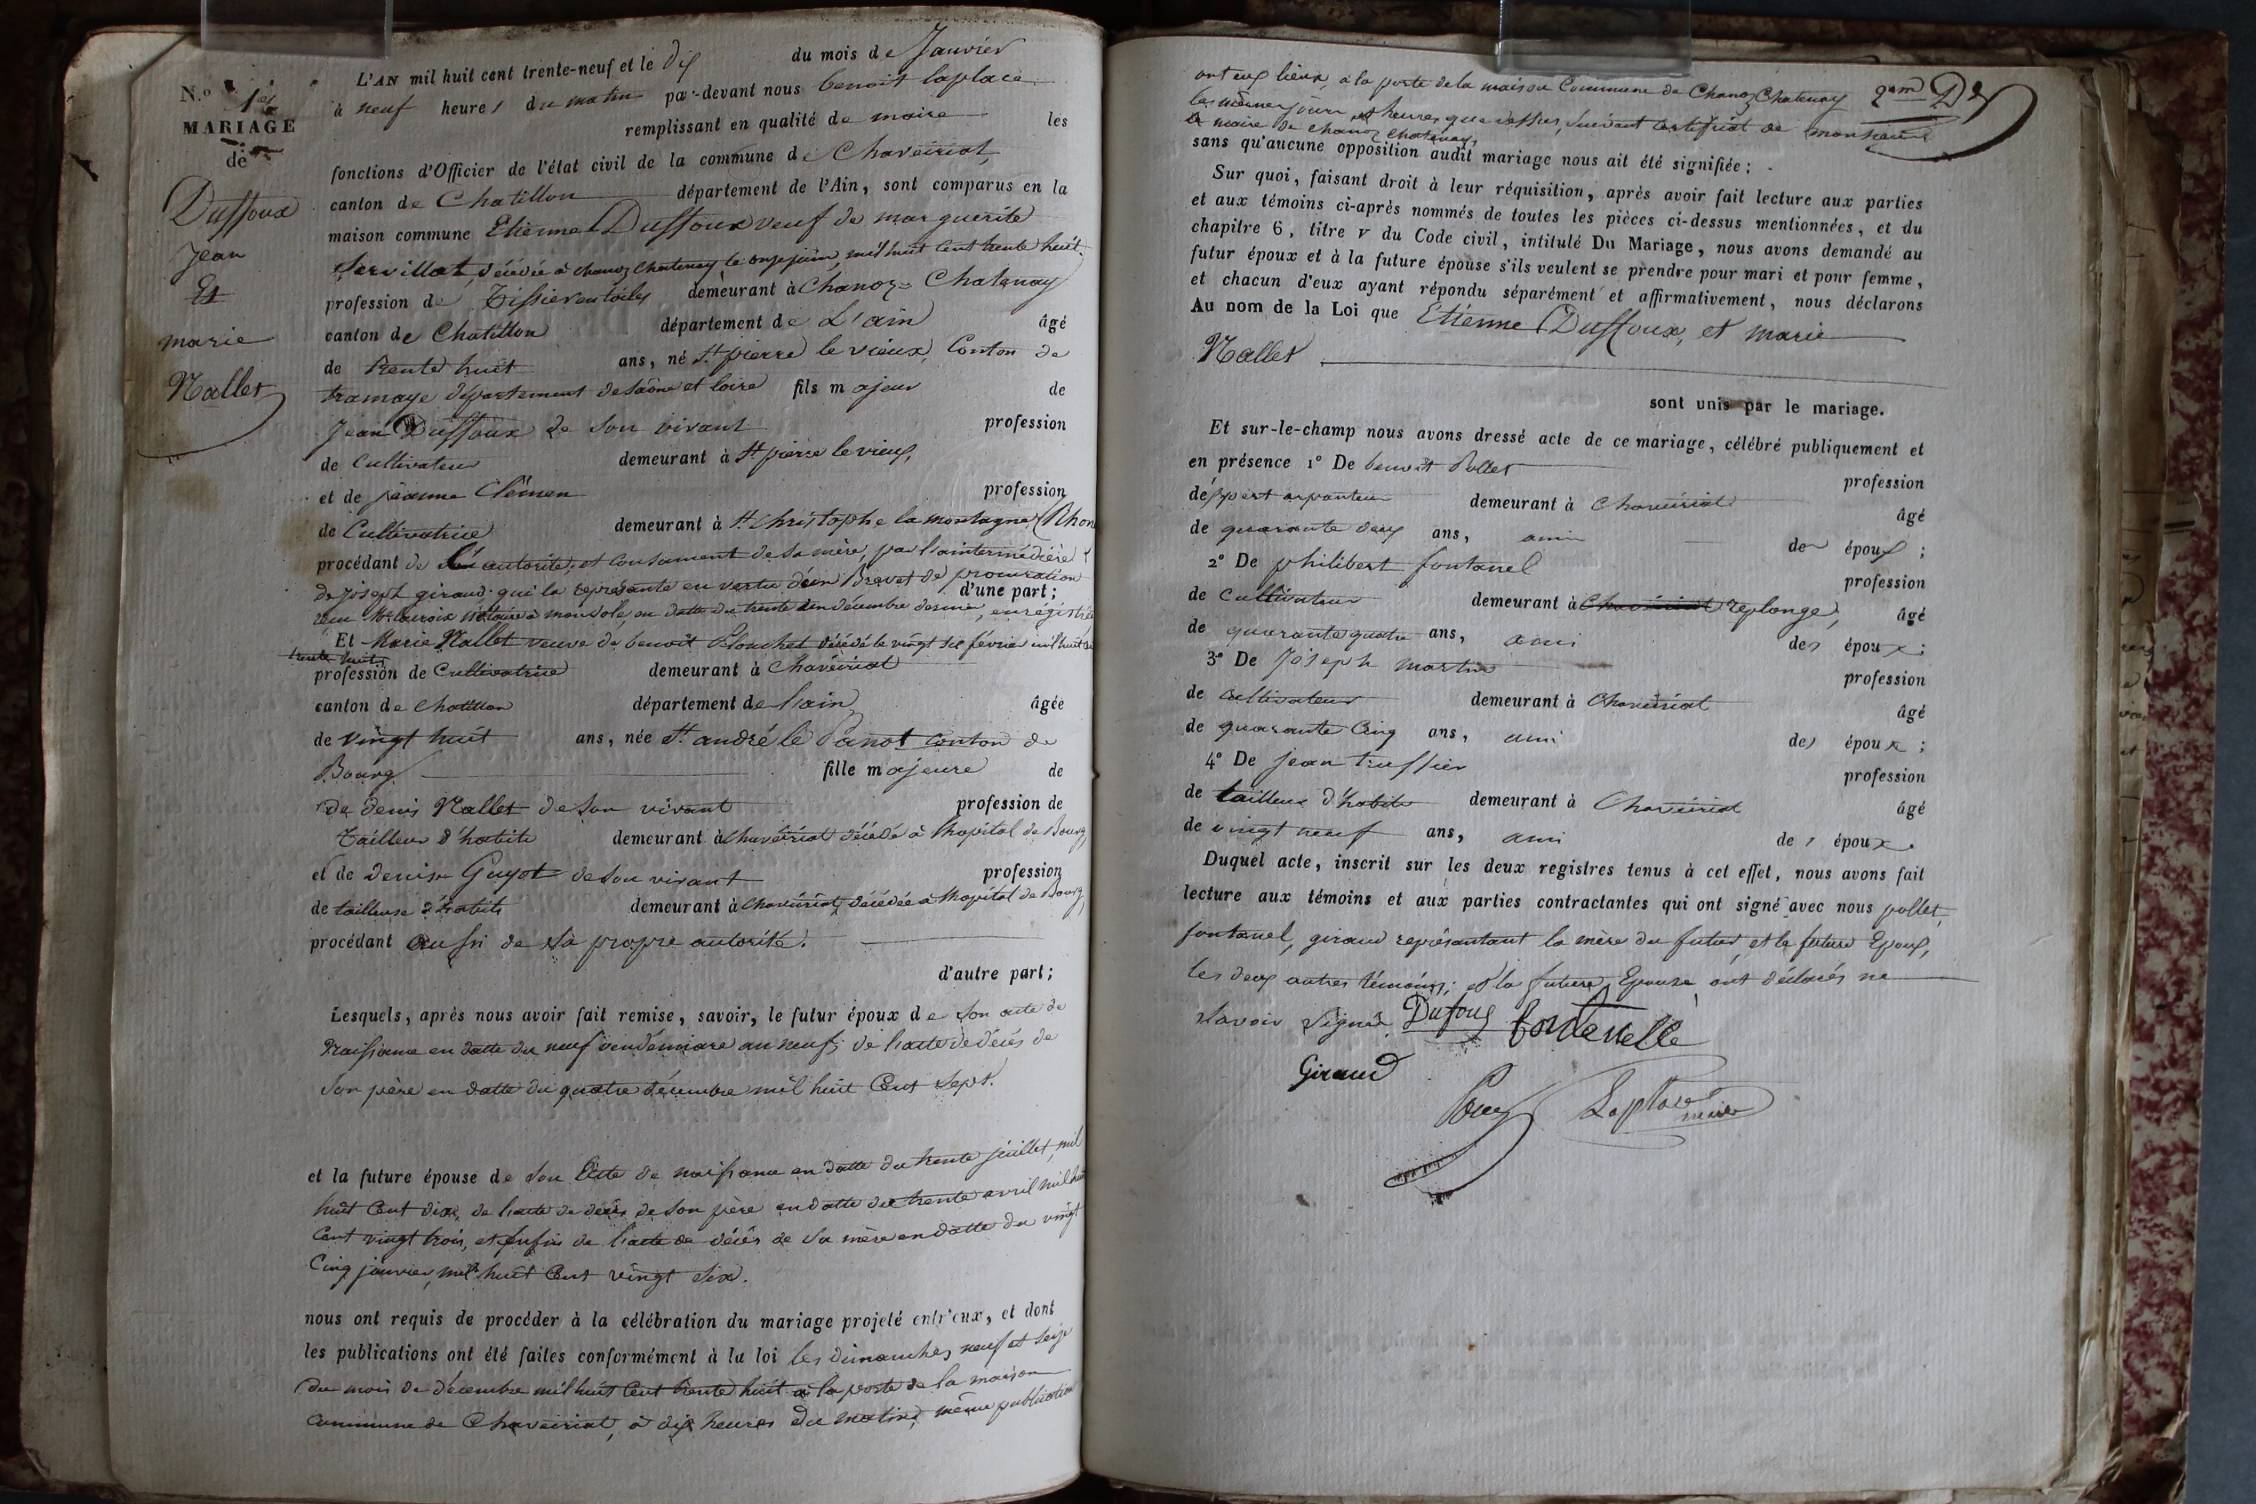 N.o 1er
MARIAGE
de
Duffoux
Jean
Et
marie
Nallet
L'AN mil huit cent trente-neuf et le Dix du mois de Janvier
à neuf heures du matin par-devant nous benoit laplace
remplissant en qualité de maire les
fonctions d'Officier de l'état civil de la commune de Chaveiriat,
canton de Chatillon département de l'Ain, sont comparus en la
maison commune Etienne Duffoux veuf de marguerite
Servillat, décédée à chanoz Chatenay le onze juin, mil huit cent trente huit.
profession de Tissier en toiles demeurant à Chanoz = Chatenay
canton de Chatillon département de L'ain âgé
de trente huit ans, né St pierre le vieux, Conton de
tramaye département de saône et loire fils majeur de
Jean Duffoux de son vivant profession
de Cultivateur demeurant à St pierre le vieux,
et de jéanne Clémen profession
de Cultivatrice demeurant à St Christophe la montagne (Rhon
procédant de autorité, et consament de sa mère, par l'aintermédière
de joseph giraud qui la représante en vertu d'un Brevet de procuration
d'une part;
notaire à monsole, en datte du trente un décembre dernier, enrégistrée
Et Marie Nallet veuve de benoît Plouchet décédé le vingt six février mil huit
trente huit
profession de Cultivatrice demeurant à Chavéiriat
canton de chatillon département de l'ain, âgée
de vingt huit ans, née St andré le Panot conton de
Bourg fille majeure de
de denis Nallet de son vivant profession de
Tailleur d'habits demeurant à chavéiriat décédé à l'hopital de Bourg,
et de denise Guyot de son vivant profession
de tailleuse d'habits demeurant à chavéiriat, décédée à l'hopital de Bourg,
procédant aussi de sa propre autorité.
d'autre part;
Lesquels, après nous avoir fait remise, savoir, le futur époux de son acte de
naissance en datte du neuf vendémiare an neuf, de l'acte de décés de
son père en datte du quatre décembre mil huit Cent sept.
et la future épouse de son acte de naissance en datte du trente juillet, mil
huit Cent dix, de l'acte de décés de son père en datte du trente avril mil huit
Cent vingt trois, et enfin de l'acte de décés de sa mère en datte du vingt
Cinq janvier, mil huit Cent vingt six.
nous ont requis de procéder à la célébration du mariage projeté entr'eux, et dont
les publications ont été faites conformément à la loi les dimanches neuf et seize
du mois de décembre mil huit Cent trente huit à la porte de la maison
commune de Chaveiriat, à dix heures du matin, même publication
ont eux lieux, à la porte de la maison Commune de Chanoz Chatenay
les mêmes jours et heures que dessus, suivant certifiat de monsieur
le maire de chanoz chatenay,
sans qu'aucune opposition audit mariage nous ait été signifiée;
Sur quoi, faisant droit à leur réquisition, après avoir fait lecture aux parties
et aux témoins ci-après nommés de toutes les pièces ci-dessus mentionnées, et du
chapitre 6, titre v du Code civil, intitulé Du Mariage, nous avons demandé au
futur époux et à la future épouse s'ils veulent se prendre pour mari et pour femme,
et chacun d'eux ayant répondu séparément et affirmativement, nous déclarons
Au nom de la Loi que Etiénne Duffoux, et marie
Nallet
sont unis par le mariage.
Et sur-le-champ nous avons dressé acte de ce mariage, célébré publiquement et
en présence 1º De benoit Pollet profession
d'éxpert arpanteur demeurant à Chavéiriat âgé
de quarante deux ans, ami de époux;
2º De philibert fontanel profession
de Cultivateur demeurant à Chavéiriat replonge, âgé
de quarante quatre ans, ami des époux;
3º De Joseph martin profession
de cultivateur demeurant à Chavéiriat âgé
de quarante Cinq ans, ami des époux;
4º De jean truffier profession
de tailleur d'habits demeurant à Chavéiriat âgé
de vingt neuf ans, ami des époux.
Duquel acte, inscrit sur les deux registres tenus à cet effet, nous avons fait
lecture aux témoins et aux parties contractantes qui ont signé avec nous pollet,
fontanel, giraud représantant la mère du futur, et le futur Epoux,
les deux autres témoins, et la future Epouse ont déclarés ne
savoir signer. Dufoug fontenelle
Giraud
Laplace
maire